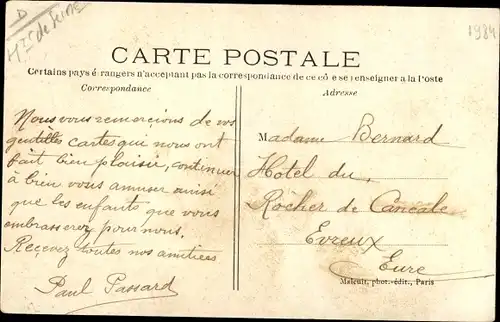 D
Hts de Seine
1984
CARTE POSTALE
Certains pays étrangers n'acceptant pas la correspondance de ce côté se renseigner a la Poste
Correspondance
Adresse
Nous vous remercions de vos
gentilles cartes qui nous ont
fait bien plaisir, continuer
à bien vous amuser ainsi
que les enfants que vous
embrasserez pour nous.
Recevez toutes nos amitiées
Paul Passard
Madame Bernard
Hotel du
Rocher de Cancale
Evreux
Eure
Malcuit, phot.-édit., Paris